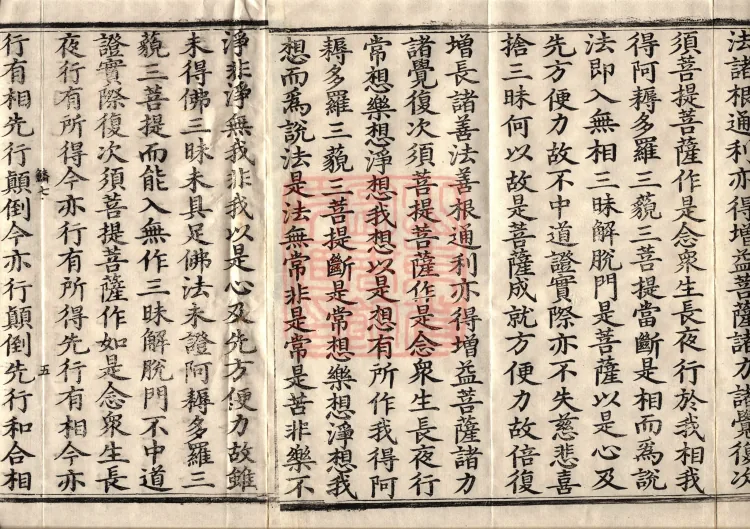 法諸根通利亦得增益菩薩諸力諸覺復次
須菩提菩薩作是念衆生長夜行於我相我
得阿耨多羅三藐三菩提當斷是相而爲說
法即入無相三昧解脫門是菩薩以是心及
先方便力故不中道證實際亦不失慈悲喜
捨三昧何以故是菩薩成就方便力故倍復
增長諸善法善根通利亦得增益菩薩諸力
諸覺復次須菩提菩薩作是念衆生長夜行
常想樂想淨想我想以是想有所作我得阿
耨多羅三藐三菩提斷是常想樂想淨想我
想而爲說法是法無常非是常是苦非樂不
淨非淨無我非我以是心及先方便力故雖
未得佛三昧未具足佛法未證阿耨多羅三
藐三菩提而能入無作三昧解脫門不中道
證實際復次須菩提菩薩作如是念衆生長
夜行有所得今亦行有所得先行有相今亦
七 五
行有相先行顛倒今亦行顛倒先行和合相